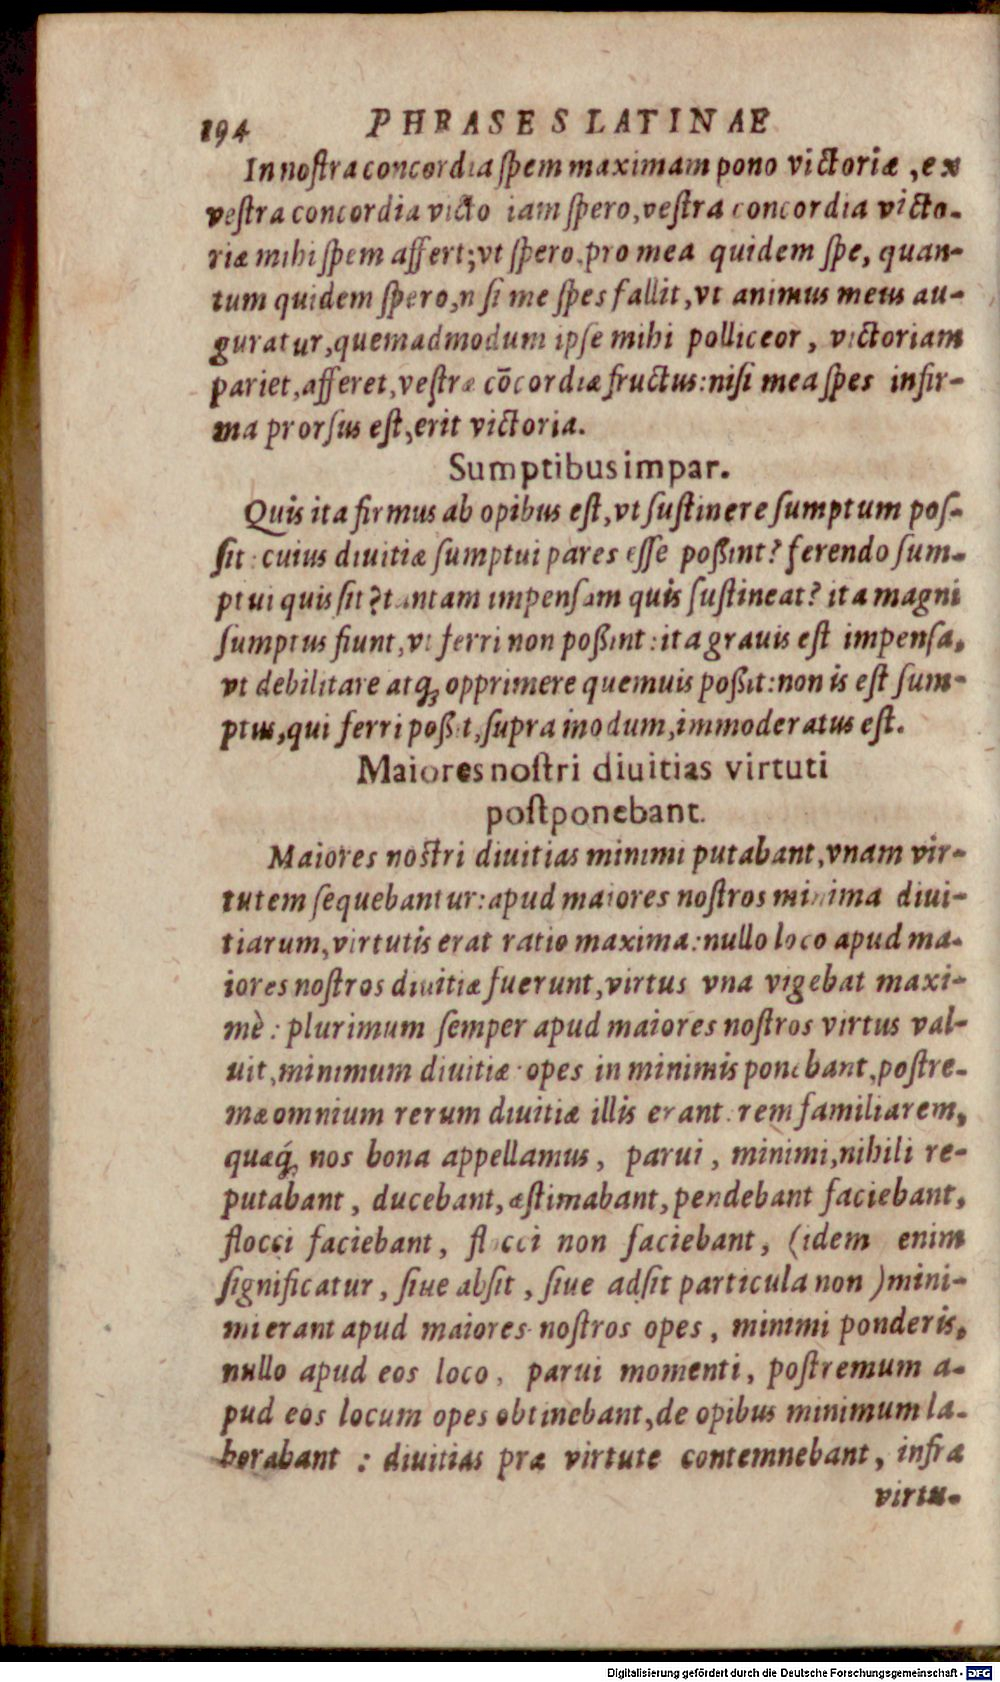 194 PHRASES LATINAE
In nostra concordia spem maximam pono victoriæ, ex
vestra concordia victo iam spero, vestra concordia victo-
riæ mihi spem affert; vt spero, pro mea quidem spe, quan-
tum quidem spero, n si me spes fallit, vt animus meus au-
guratur, quemadmodum ipse mihi polliceor, victoriam
pariet, afferet, vestræ cōcordiæ fructus: nisi mea spes infir-
ma prorsus est, erit victoria.
Sumptibus impar.
Quis ita firmus ab opibus est, vt sustinere sumptum pos-
sit: cuius diuitiæ sumptui pares esse poßint? ferendo sum-
ptui quis sit? tantam impensam quis sustineat? ita magni
sumptus fiunt, vt ferri non poßint: ita grauis est impensa,
vt debilitare atq; opprimere quemuis poßit: non is est sum-
ptus, qui ferri poßit, supra modum, immoderatus est.
Maiores nostri diuitias virtuti
postponebant.
Maiores nostri diuitias minimi putabant, vnam vir-
tutem sequebantur: apud maiores nostros minima diui-
tiarum, virtutis erat ratio maxima: nullo loco apud ma-
iores nostros diuitiæ fuerunt, virtus vna vigebat maxi-
mè: plurimum semper apud maiores nostros virtus val-
uit, minimum diuitiæ: opes in minimis ponebant, postre-
mæ omnium rerum diuitiæ illis erant: rem familiarem,
quæq́; nos bona appellamus, parui, minimi, nihili re-
putabant, ducebant, æstimabant, pendebant faciebant,
flocci faciebant, flocci non faciebant, (idem enim
significatur, siue absit, siue adsit particula non) mini-
mi erant apud maiores nostros opes, minimi ponderis,
nullo apud eos loco, parui momenti, postremum a-
pud eos locum opes obtinebant, de opibus minimum la-
borabant: diuitias præ virtute contemnebant, infra
virtu-
Digitalisierung gefördert durch die Deutsche Forschungsgemeinschaft - DFG